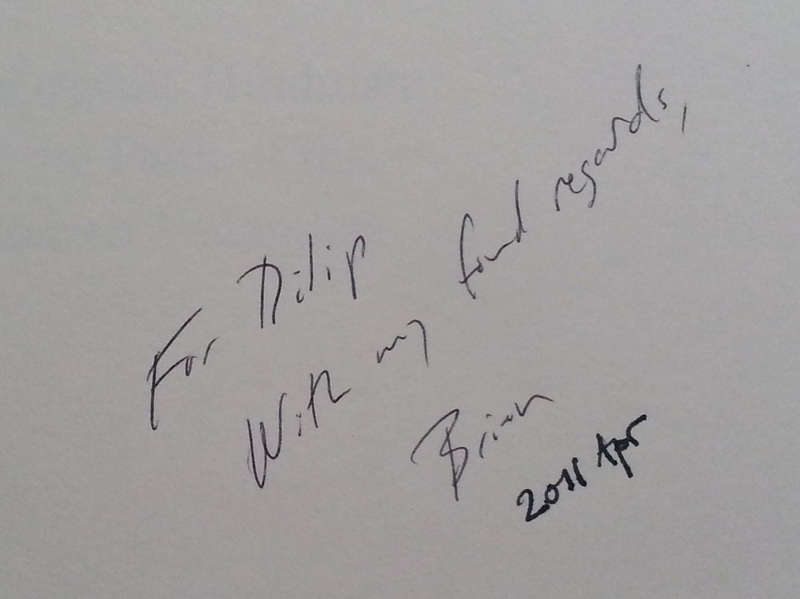 For Dilip
With my fond regards,
Brian
2011 Apr